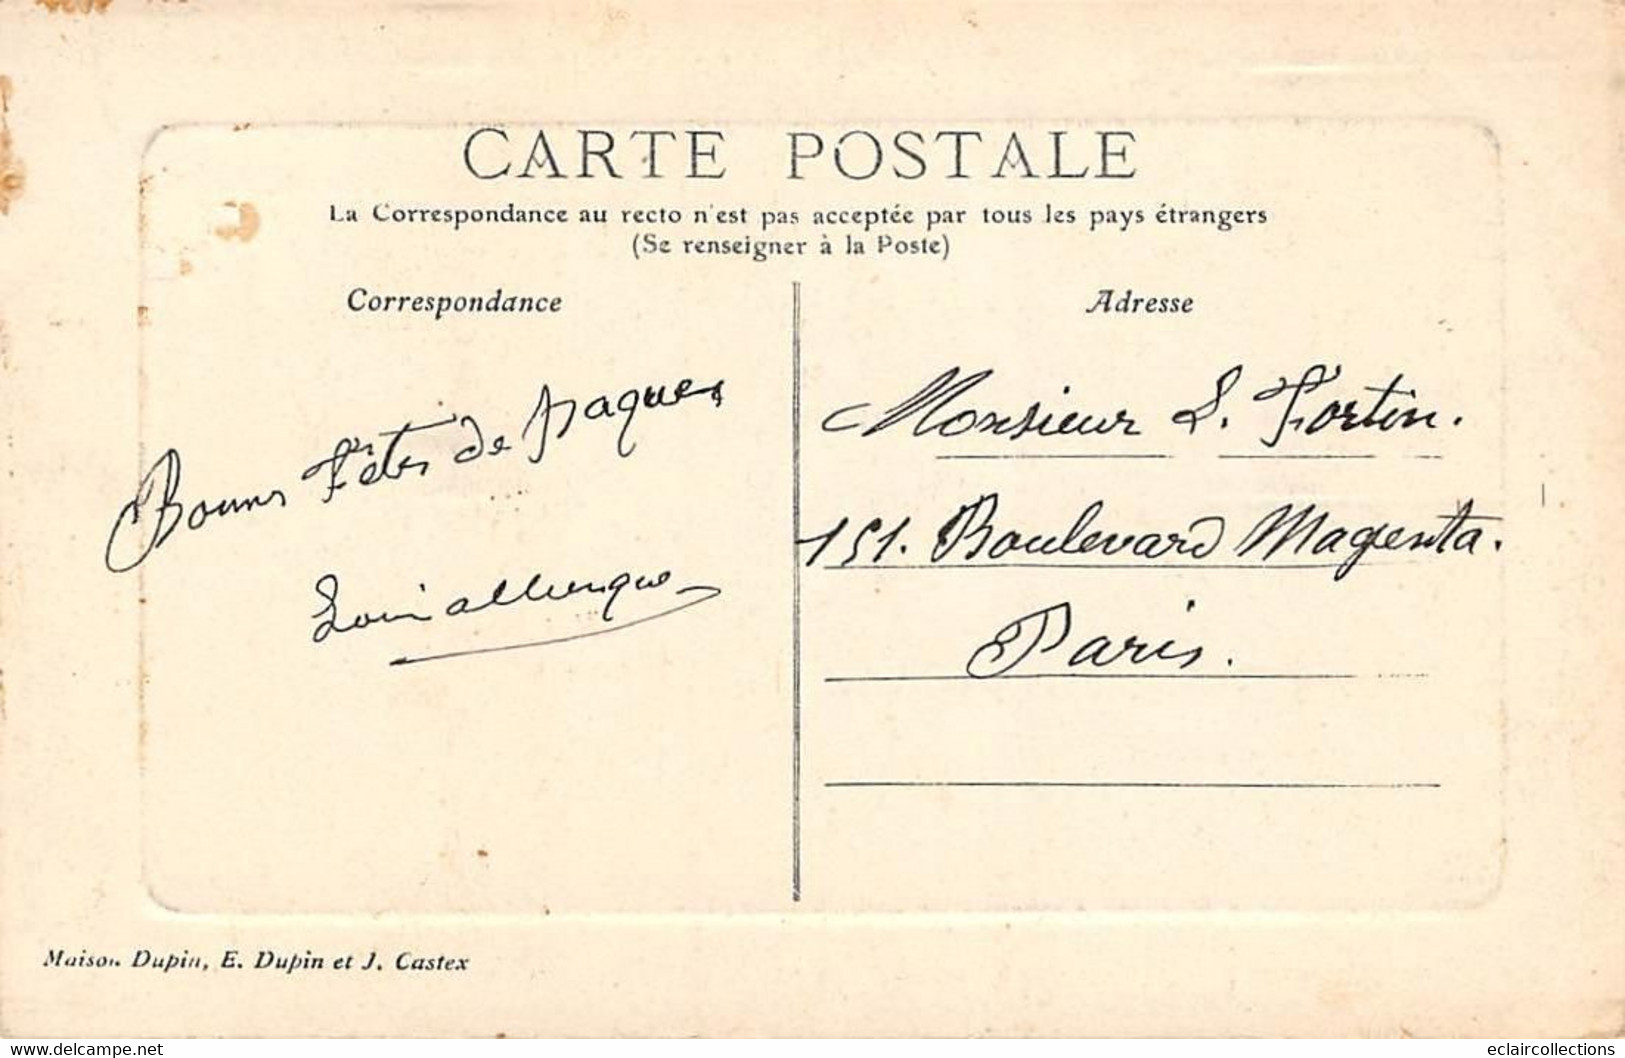 CARTE POSTALE
La Correspondance au recto n'est pas acceptée par tous les pays étrangers
(Se renseigner à la Poste)
Correspondance
Adresse
Bonnes Fêtes de Paques
Monsieur L. Fortin.
151. Boulevard Magenta.
Paris.
Maison Dupin, E. Dupin et J. Castex
www.delcampe.net
eclaircollections